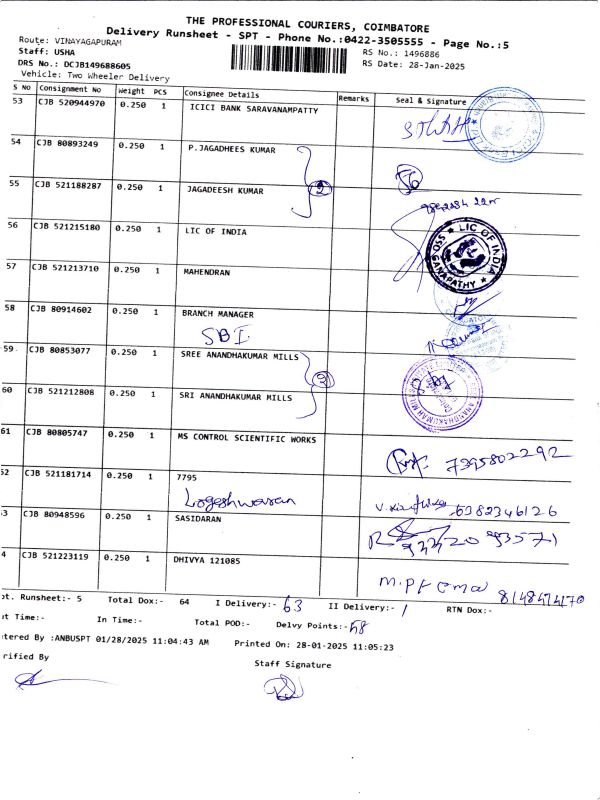 THE PROFESSIONAL COURIERS, COIMBATORE
Delivery Runsheet - SPT - Phone No.:0422-3505555 - Page No.:5
Route: VINAYAGAPURAM
Staff: USHA RS No.: 1496886
DRS No.: DCJB149688605 RS Date: 28-Jan-2025
Vehicle: Two Wheeler Delivery
S No Consignment No Weight PCS Consignee Details Remarks Seal & Signature
53 CJB 520944970 0.250 1 ICICI BANK SARAVANAMPATTY
54 CJB 80893249 0.250 1 P.JAGADHEES KUMAR
2
55 CJB 521188287 0.250 1 JAGADEESH KUMAR
56 CJB 521215180 0.250 1 LIC OF INDIA
LIC OF INDIA
GANAPATHY
57 CJB 521213710 0.250 1 MAHENDRAN
58 CJB 80914602 0.250 1 BRANCH MANAGER
SBI
59 CJB 80853077 0.250 1 SREE ANANDHAKUMAR MILLS
2
60 CJB 521212808 0.250 1 SRI ANANDHAKUMAR MILLS
61 CJB 80805747 0.250 1 MS CONTROL SCIENTIFIC WORKS
7395802292
52 CJB 521181714 0.250 1 7795
Logeshwaran 6382346126
3 CJB 80948596 0.250 1 SASIDARAN
4 CJB 521223119 0.250 1 DHIVYA 121085
pt. Runsheet:- 5 Total Dox:- 64 I Delivery:- 63 II Delivery:- 1 RTN Dox:-
ut Time:- In Time:- Total POD:- Delvy Points:- 58
tered By :ANBUSPT 01/28/2025 11:04:43 AM Printed On: 28-01-2025 11:05:23
rified By Staff Signature